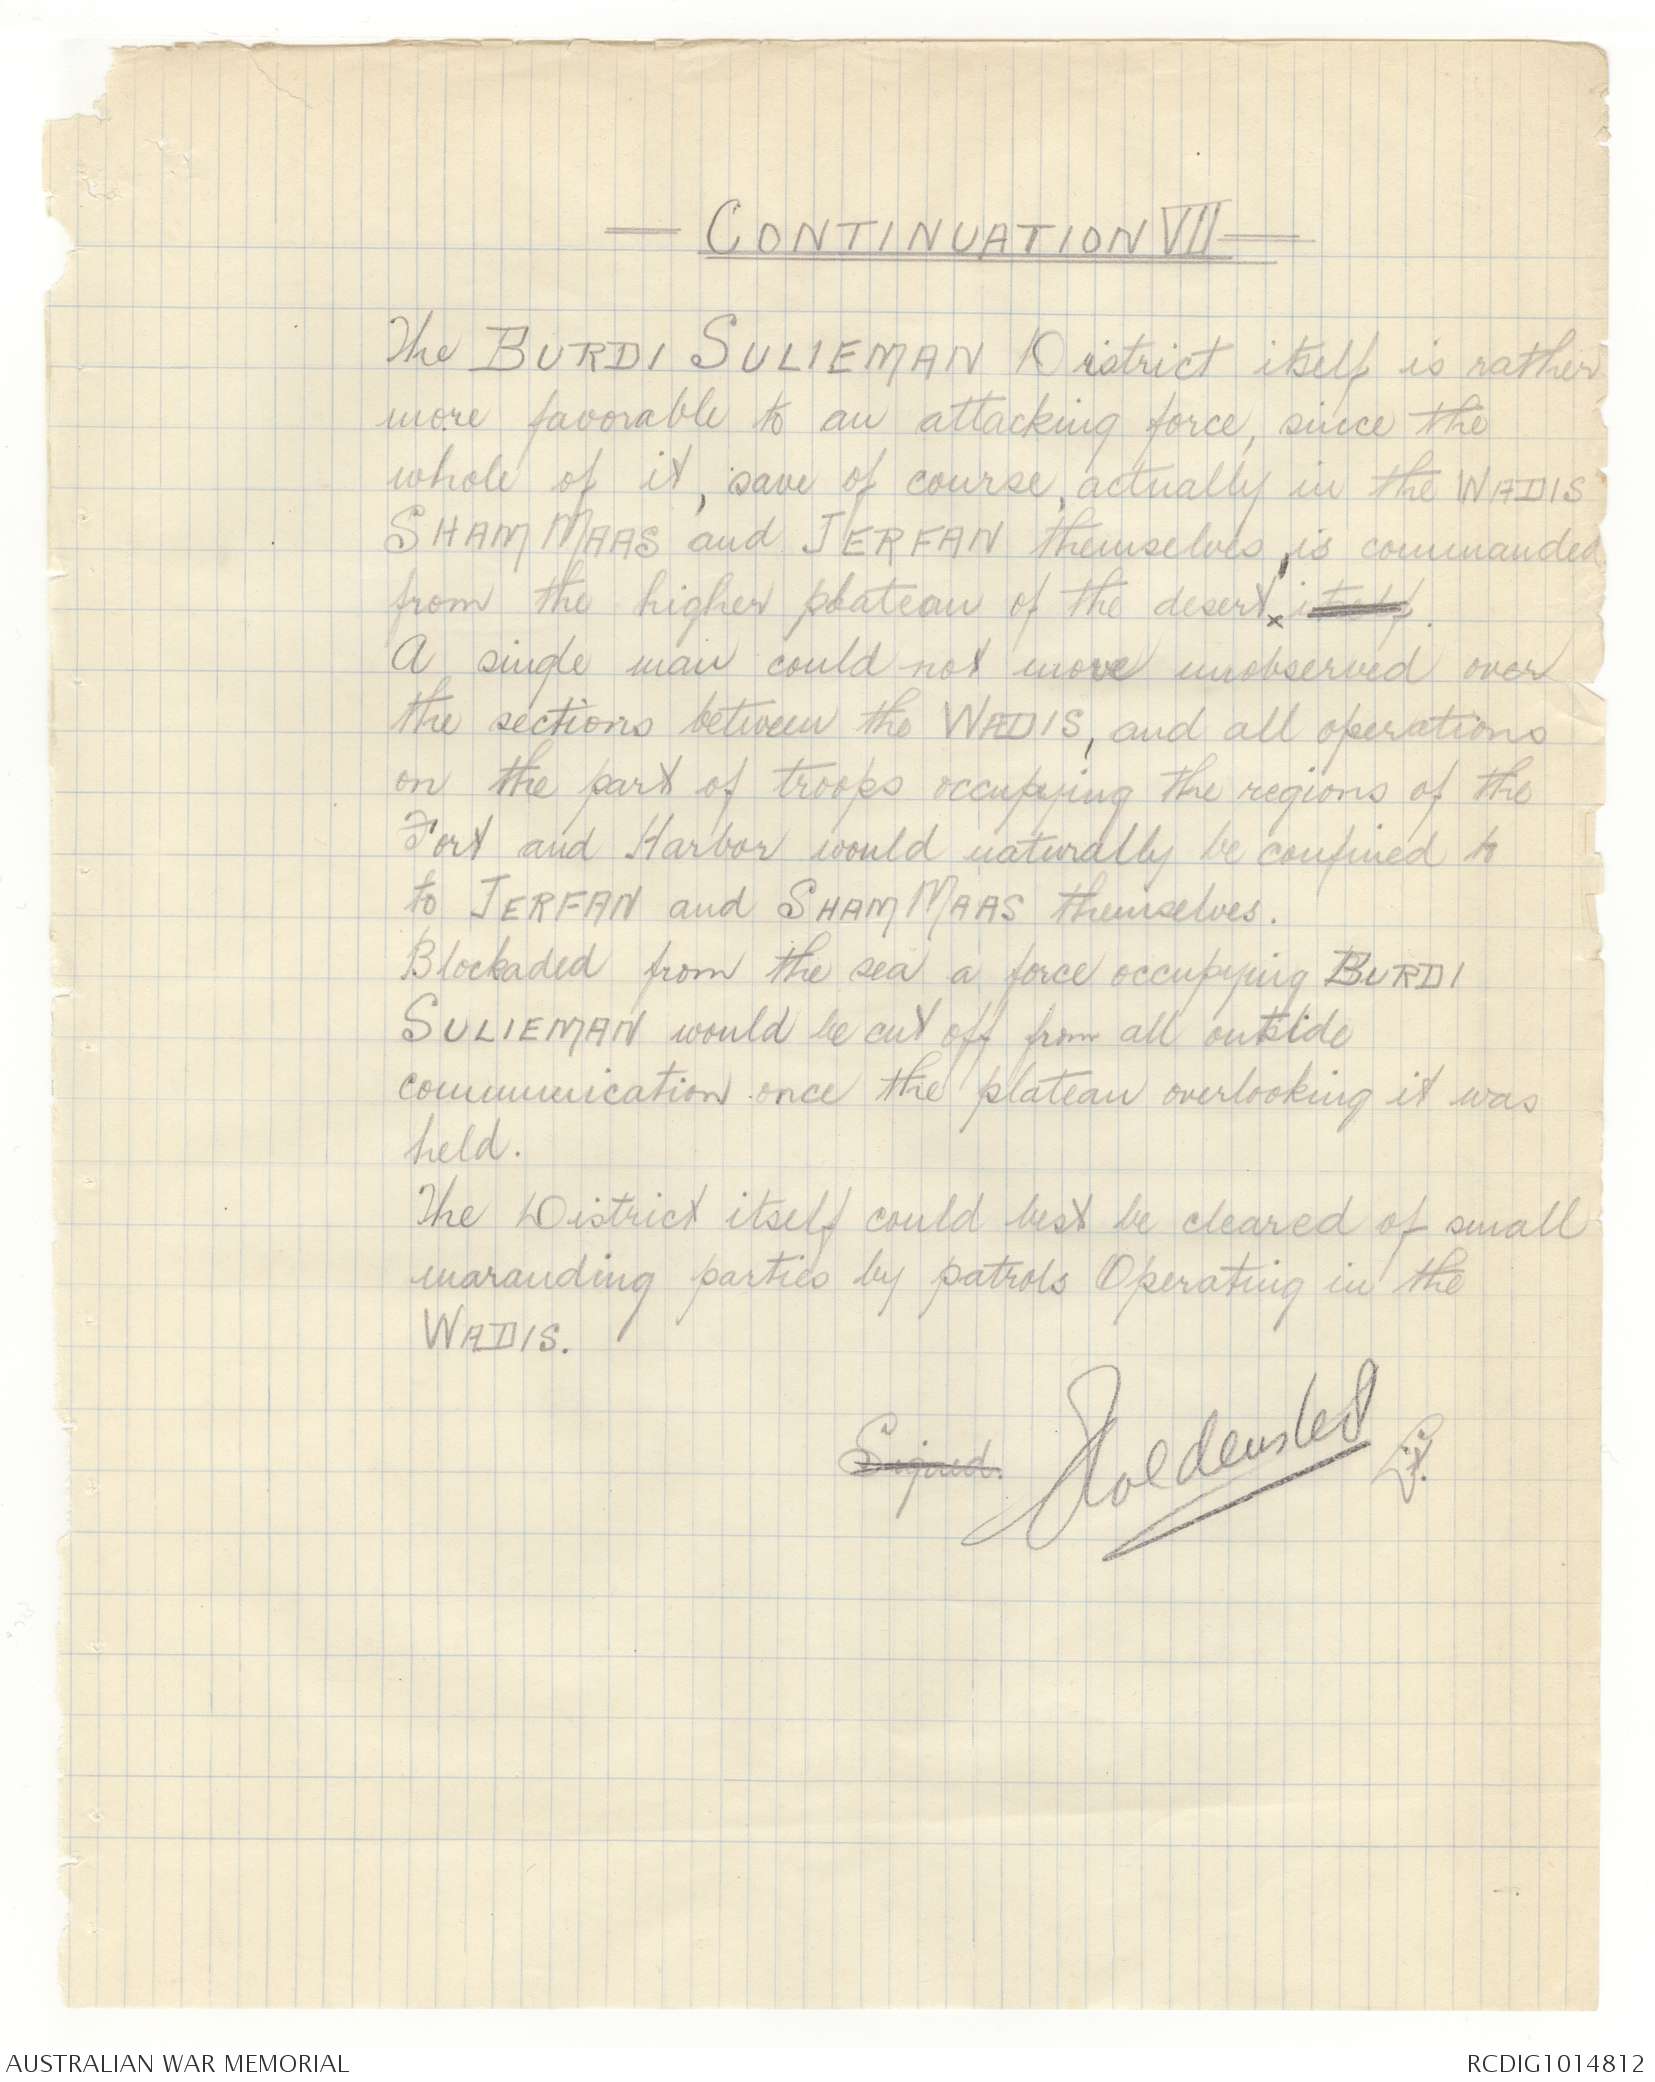 — CONTINUATION VII —
The BURDI SULIEMAN District itself is rather
more favorable to an attacking force, since the
whole of it, save of course, actually in the WADIS
SHAMMAAS and JERFAN themselves, is commanded
from the higher plateau of the desert x itself.
A single man could not move unobserved over
the sections between the WADIS, and all operations
on the part of troops occupying the regions of the
Fort and Harbor would naturally be confined to
to JERFAN and SHAMMAAS themselves.
Blockaded from the sea a force occupying BURDI
SULIEMAN would be cut off from all outside
communication once the plateau overlooking it was
held.
The District itself could best be cleared of small
marauding parties by patrols Operating in the
WADIS.
Signed. Lt.
AUSTRALIAN WAR MEMORIAL
RCDIG1014812